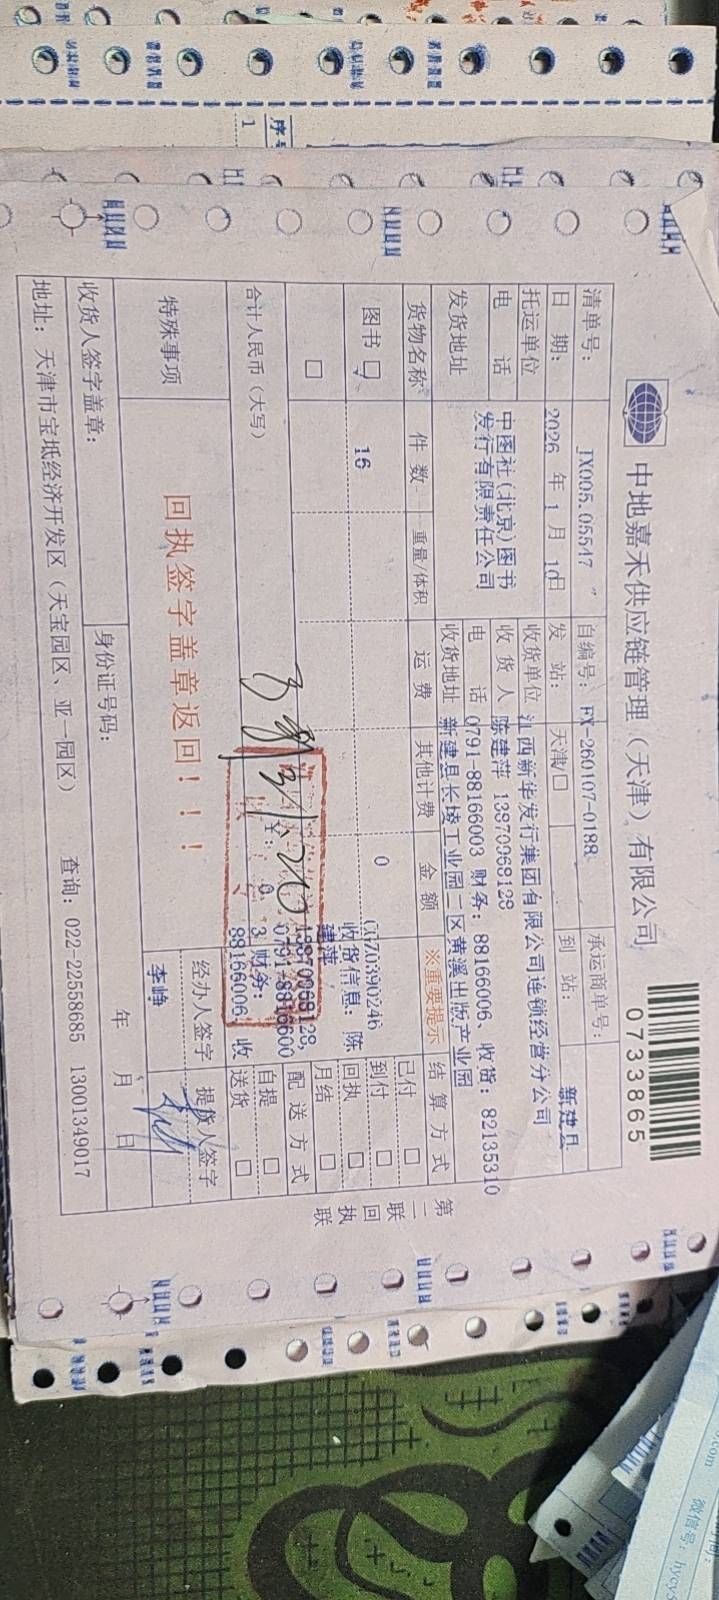 中地嘉禾供应链管理（天津）有限公司
0733865
清单号： JX005.05547 自编号： FX-260107-0188 承运商单号：
日 期： 2026 年 1 月 10日 发 站： 天津 到 站： 新建县
托运单位 中图社(北京)图书发行有限责任公司 收货单位 江西新华发行集团有限公司连锁经营分公司
电 话 收 货 人 陈建萍 13970968128
电 话 0791-88166003 财务： 88166006、收货： 82135310
发货地址 收货地址 新建县长堎工业园二区黄溪出版产业园
货物名称 件 数 重量/体积 运 费 其他计费 金 额 ※重要提示 结 算 方 式
图书 16 0
收货信息： 陈
建萍
3 财务：
88166006、收
已付 □
到付 □
回执 □
月结 □
配 送 方 式
自提 □
送货 □
合计人民币（大写）
特殊事项 回执签字盖章返回！！！
经办人签字 提货人签字
李峥
收货人签字盖章： 身份证号码： 年 月 日
地址： 天津市宝坻经济开发区（天宝园区、亚一园区） 查询： 022-22558685 13001349017
第二联 回执联
序号
1
微信号：